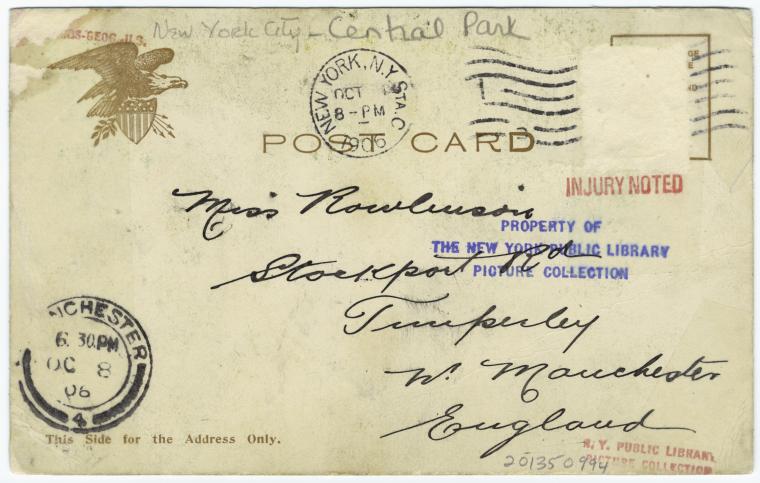 New York City - Central Park
-GEOG.-U.S.
NEW YORK, N.Y. STA. C
OCT
8-PM
1906
POST CARD
INJURY NOTED
Miss Rowlinson
PROPERTY OF
THE NEW YORK PUBLIC LIBRARY
PICTURE COLLECTION
Stockport Rd
Timperley
Nr. Manchester
England
NCHESTER
6.30PM
OC 8
06
4
This Side for the Address Only.
N.Y. PUBLIC LIBRARY
PICTURE COLLECTION
201350994